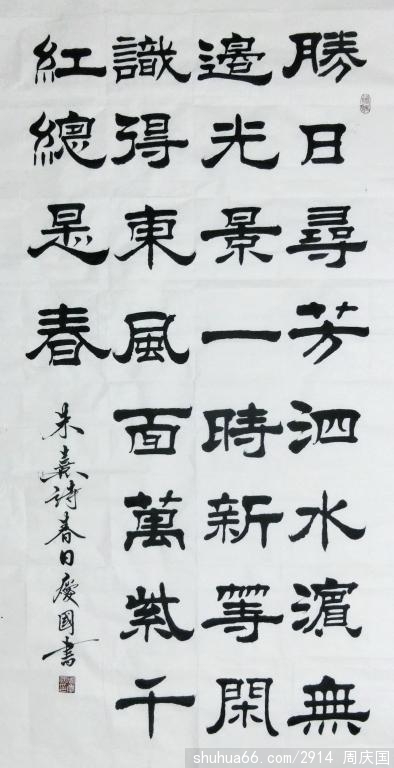 勝日尋芳泗水濵無
邉光景一時新等閑
識得東風面萬紫千
紅總是春
朱熹詩春日慶國書
shuhua66.com/2914 周庆国